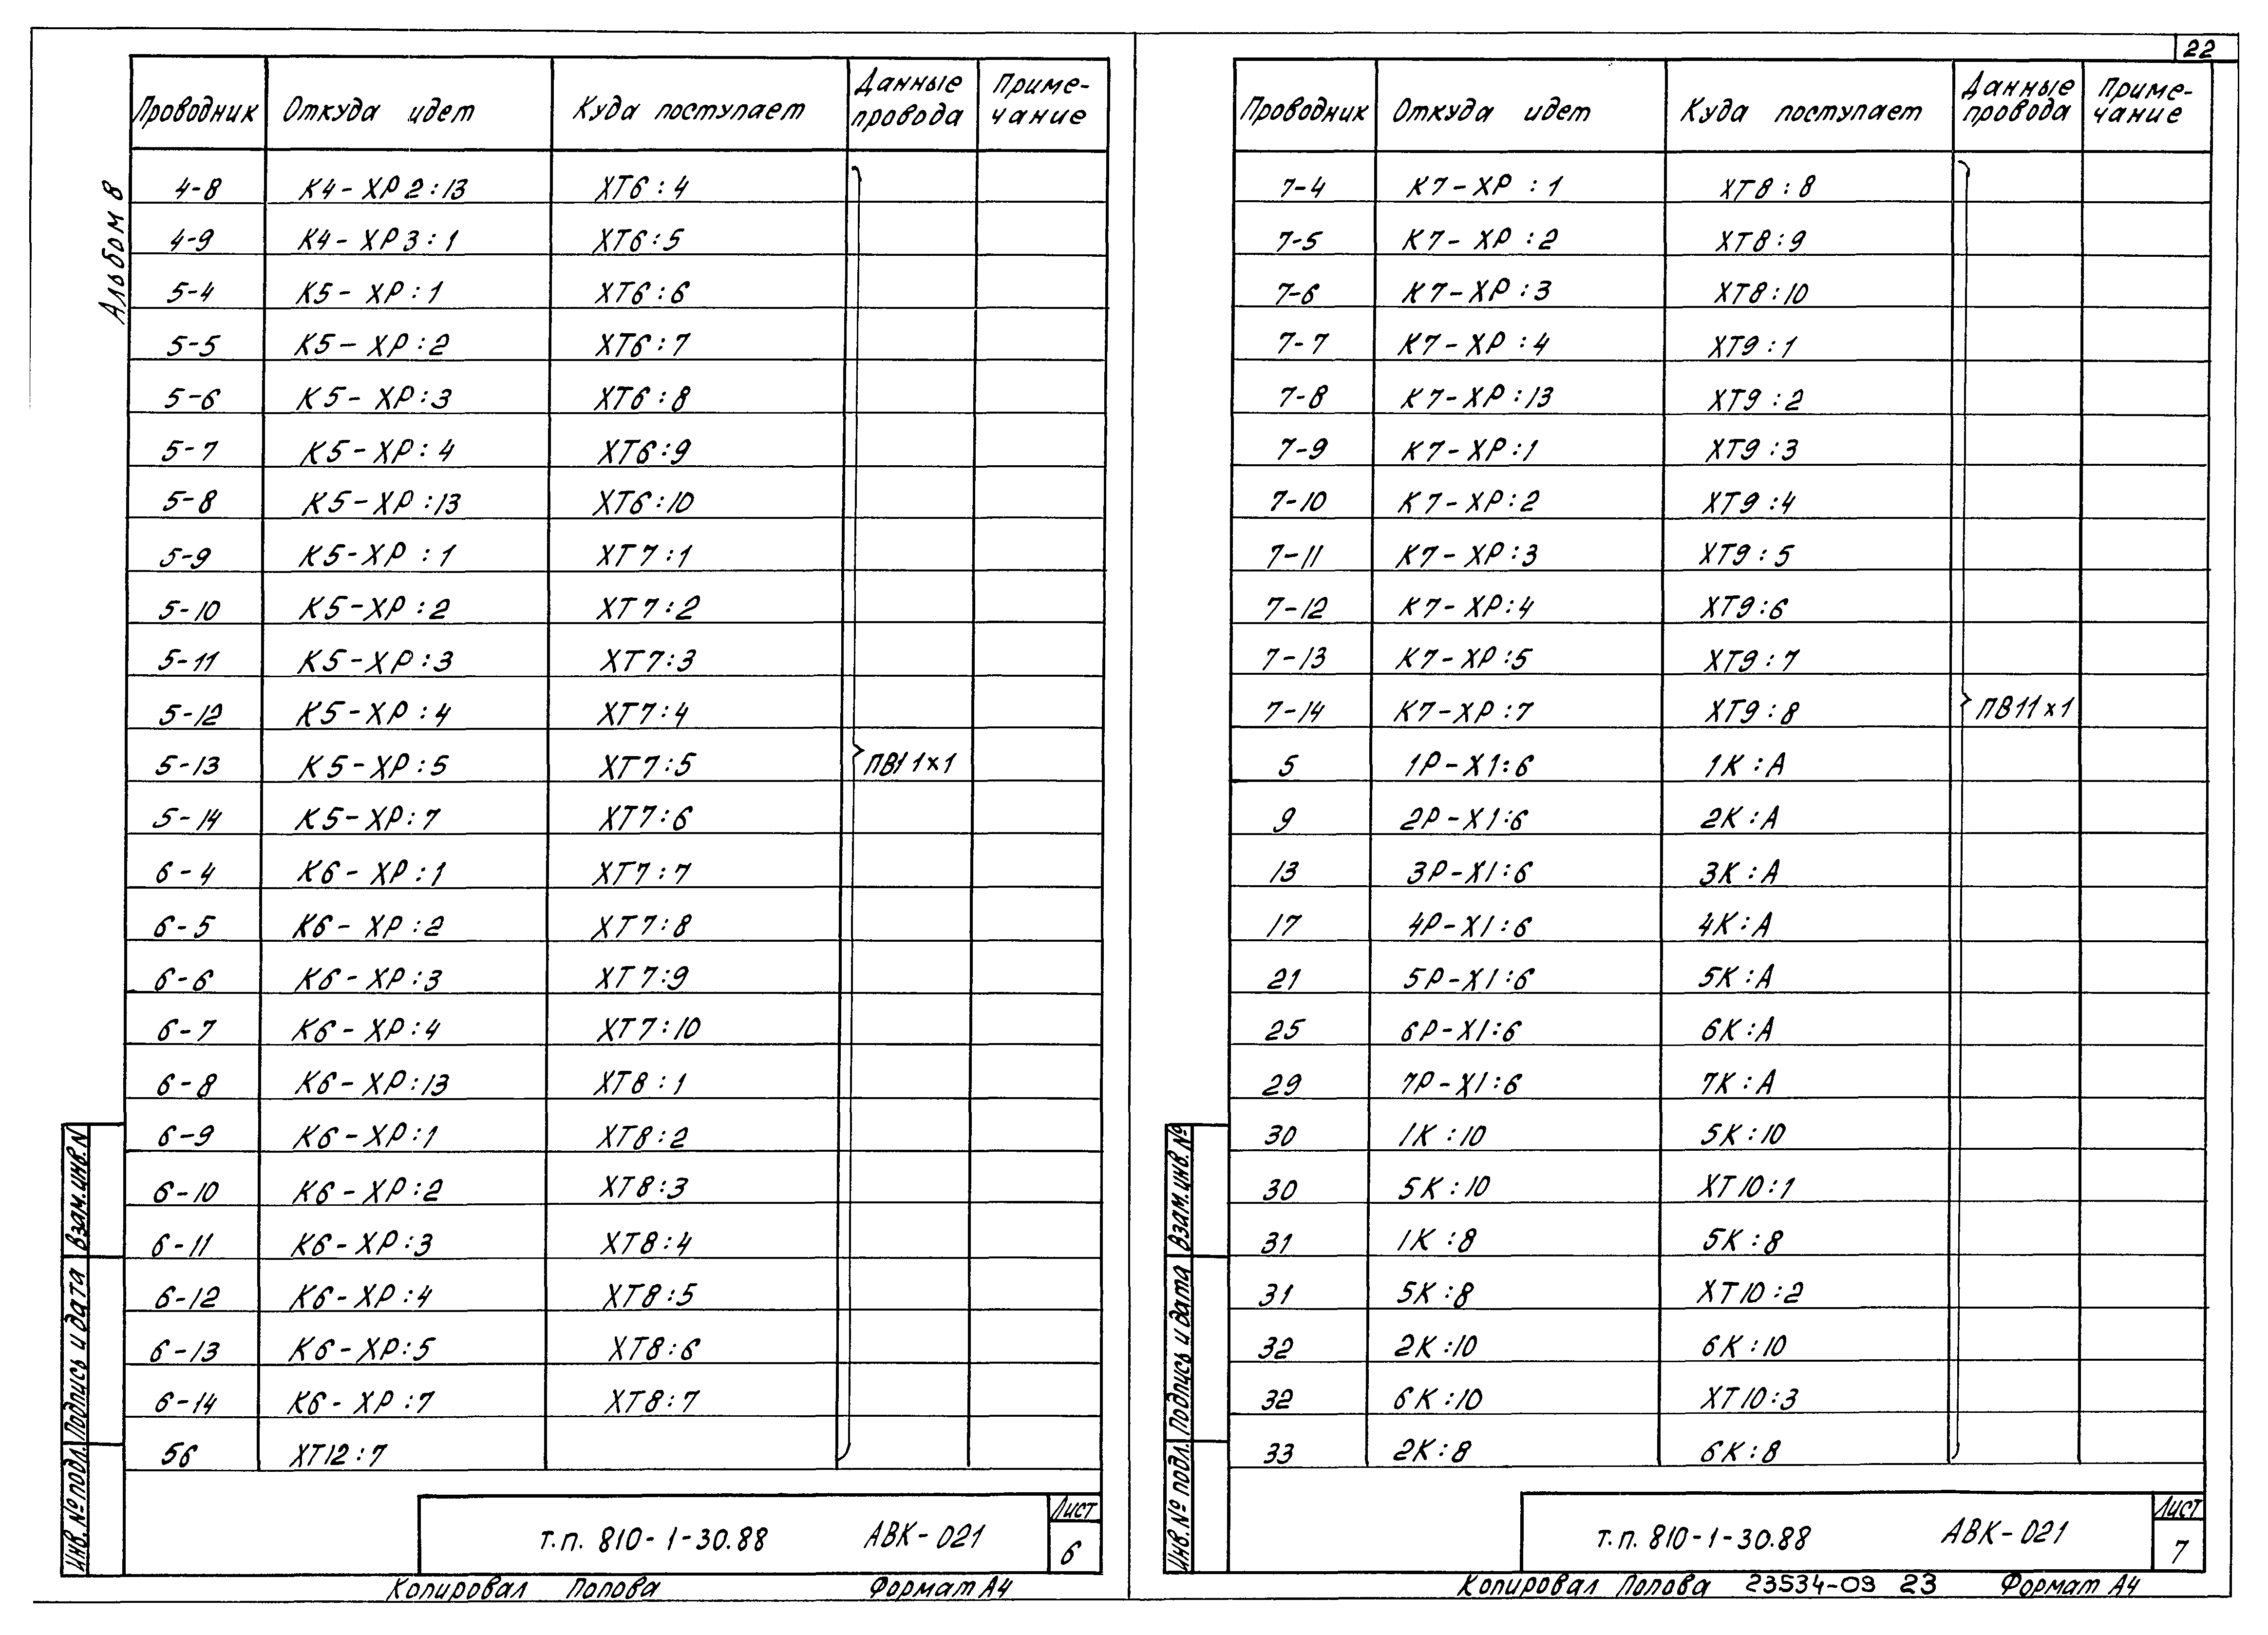 22
Альбом 8
Проводник Откуда идет Куда поступает Данные провода Приме-чание
4-8 К4-ХР2:13 ХТ6:4
4-9 К4-ХР3:1 ХТ6:5
5-4 К5-ХР:1 ХТ6:6
5-5 К5-ХР:2 ХТ6:7
5-6 К5-ХР:3 ХТ6:8
5-7 К5-ХР:4 ХТ6:9
5-8 К5-ХР:13 ХТ6:10
5-9 К5-ХР:1 ХТ7:1
5-10 К5-ХР:2 ХТ7:2
5-11 К5-ХР:3 ХТ7:3
5-12 К5-ХР:4 ХТ7:4
5-13 К5-ХР:5 ХТ7:5 ПВ1 1×1
5-14 К5-ХР:7 ХТ7:6
6-4 К6-ХР:1 ХТ7:7
6-5 К6-ХР:2 ХТ7:8
6-6 К6-ХР:3 ХТ7:9
6-7 К6-ХР:4 ХТ7:10
6-8 К6-ХР:13 ХТ8:1
6-9 К6-ХР:1 ХТ8:2
6-10 К6-ХР:2 ХТ8:3
6-11 К6-ХР:3 ХТ8:4
6-12 К6-ХР:4 ХТ8:5
6-13 К6-ХР:5 ХТ8:6
6-14 К6-ХР:7 ХТ8:7
56 ХТ12:7
Инв.№ подл. Подпись и дата Взам.инв.N
т.п. 810-1-30.88 АВК-021 Лист 6
Копировал Попова Формат А4
Проводник Откуда идет Куда поступает Данные провода Приме-чание
7-4 К7-ХР:1 ХТ8:8
7-5 К7-ХР:2 ХТ8:9
7-6 К7-ХР:3 ХТ8:10
7-7 К7-ХР:4 ХТ9:1
7-8 К7-ХР:13 ХТ9:2
7-9 К7-ХР:1 ХТ9:3
7-10 К7-ХР:2 ХТ9:4
7-11 К7-ХР:3 ХТ9:5
7-12 К7-ХР:4 ХТ9:6
7-13 К7-ХР:5 ХТ9:7
7-14 К7-ХР:7 ХТ9:8 ПВ1 1×1
5 1Р-Х1:6 1К:А
9 2Р-Х1:6 2К:А
13 3Р-Х1:6 3К:А
17 4Р-Х1:6 4К:А
21 5Р-Х1:6 5К:А
25 6Р-Х1:6 6К:А
29 7Р-Х1:6 7К:А
30 1К:10 5К:10
30 5К:10 ХТ10:1
31 1К:8 5К:8
31 5К:8 ХТ10:2
32 2К:10 6К:10
32 6К:10 ХТ10:3
33 2К:8 6К:8
Инв.№ подл. Подпись и дата Взам.инв.№
т.п. 810-1-30.88 АВК-021 Лист 7
Копировал Попова 23534-09 23 Формат А4